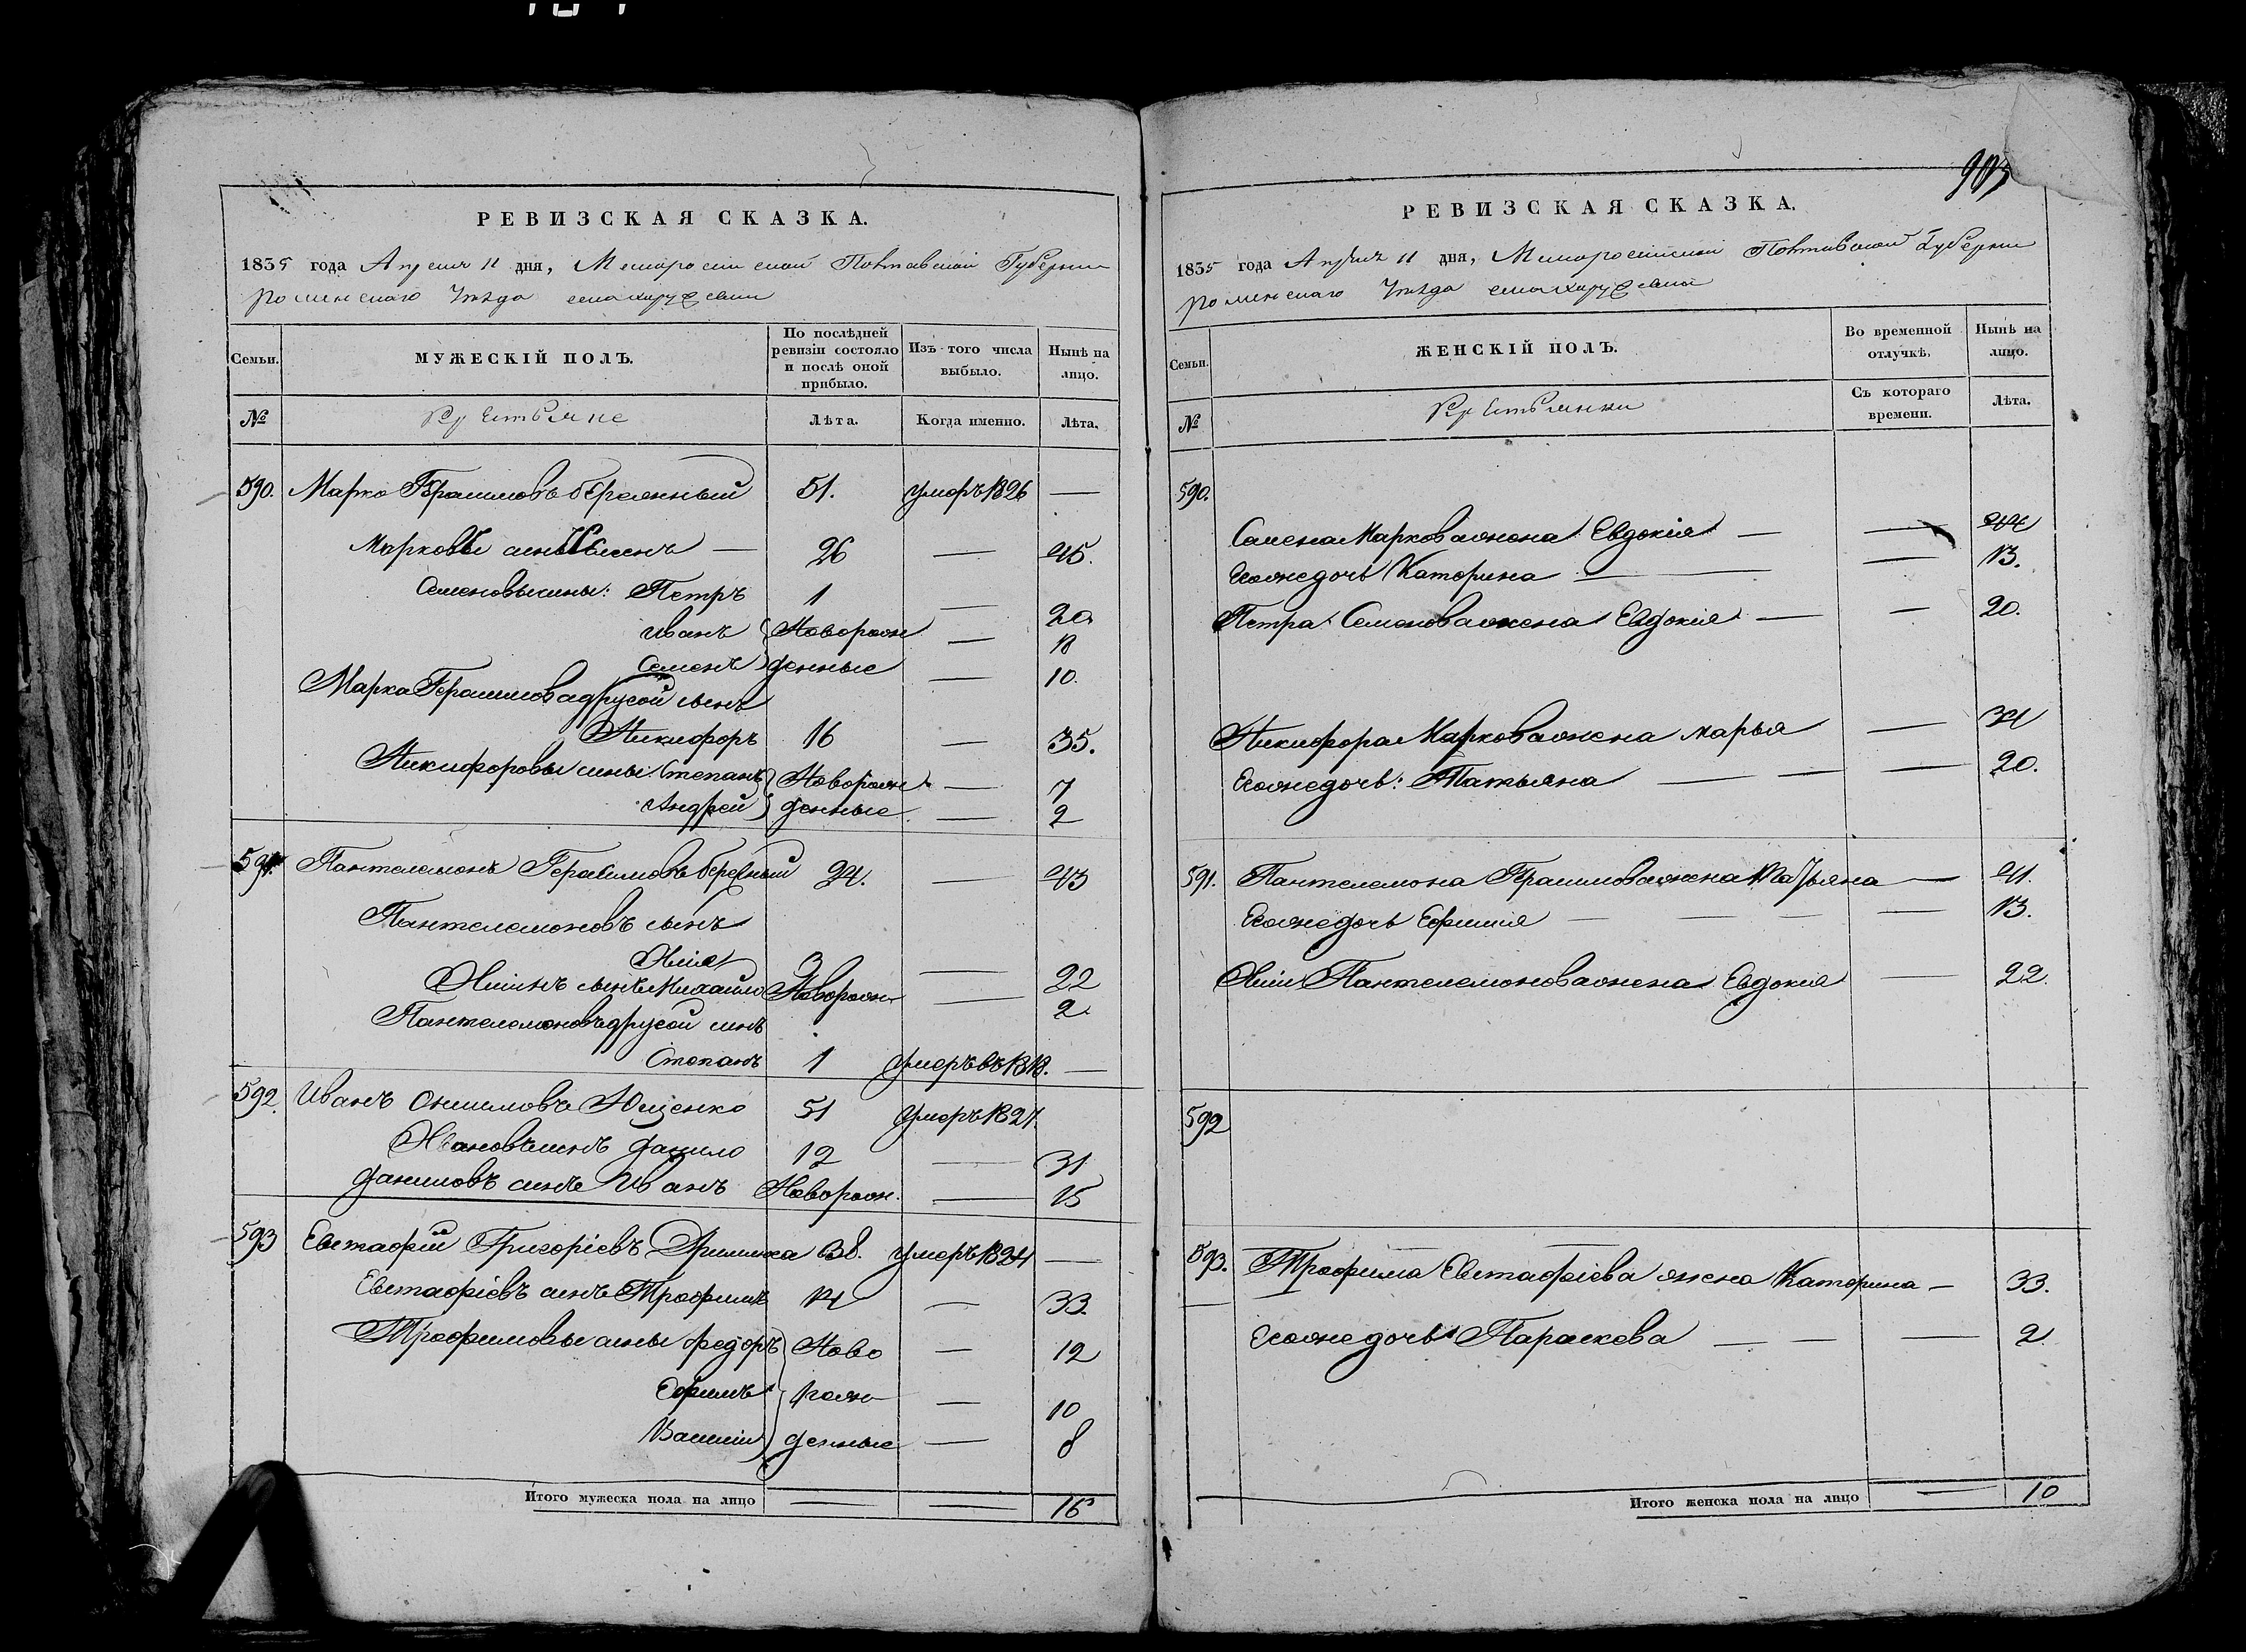 903
РЕВИЗСКАЯ СКАЗКА.
1835 года Апреля 11 дня, Малороссийской Полтавской Губернии
Роменскаго Уезда села
Семьи. МУЖЕСКІЙ ПОЛЪ. По послѣдней ревизіи состояло и послѣ оной прибыло. Изъ того числа выбыло. Нынѣ на лицо.
№ Крестьяне Лѣта. Когда именно. Лѣта.
590. Марко Герасимовъ 51. умеръ 1826 —
Марковъ синъ Семенъ — 26 — 45.
Семеновы сины: Петръ 1 — 20
Иванъ Новорож — 18
Семенъ денные — 10.
Марка Герасимова другой сынъ
Никифоръ 16 — 35.
Никифоровы сины: Степанъ Новорож — 7
Андрей денные — 2
591. Пантелемонъ Герасимовъ 24. — 43
Пантелемоновъ сынъ
Илія 3 — 22
Иліинъ сынъ Михайло Новорож — 2
Пантелемоновъ другой синъ
Степанъ 1 умеръ въ 1818. —
592. Иванъ Онисимовъ Ющенко 51 умеръ 1827.
Ивановъ синъ Данило 12 — 31
Даниловъ синъ Иванъ Новорож. — 15
593 Евстафій Григоріевъ 38. умеръ 1824 —
Евстафіевъ синъ Трофимъ 14 — 33.
Трофимовы сины Федоръ Ново — 12
Ефимъ рож — 10
Василій денные — 8
Итого мужеска пола на лицо — — 16
РЕВИЗСКАЯ СКАЗКА.
1835 года Апреля 11 дня, Малороссийской Полтавской Губернии
Роменскаго Уезда села
Семьи. ЖЕНСКІЙ ПОЛЪ. Во временной отлучкѣ. Нынѣ на лицо.
№ Крестьянки Съ котораго времени. Лѣта.
590.
Семена Маркова жена Евдокія — — 44
Егоже дочь Катерина — — 13.
Петра Семенова жена Евдокія — — 20.
Никифора Маркова жена Марья — 34
Егоже дочь: Татьяна — — — 20.
591. Пантелемона Герасимова жена Татьяна — 41.
Егоже дочь Ефимия — — — — 13.
Иліи Пантелемонова жена Евдокия — 22.
592
593. Трофима Евстафіева жена Катерина — 33.
Егоже дочь Параскева — — — 2
Итого женска пола на лицо — 10